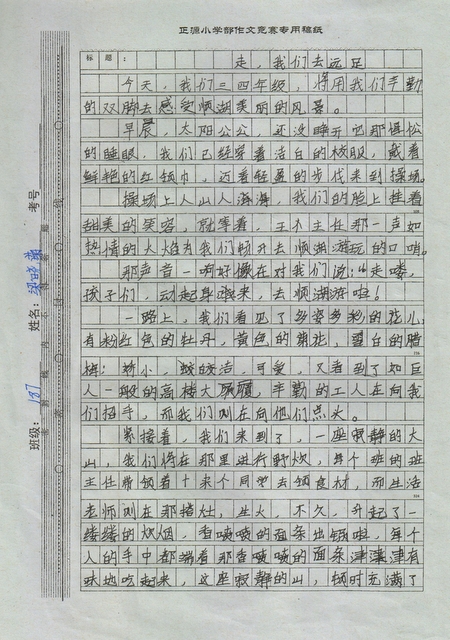 正源小学部作文竞赛专用稿纸
标题：走，我们去远足
今天，我们三四年级，将用我们手勤
的双脚去感受顺湖美丽的风景。
早晨，太阳公公，还没睁开它那惺忪
的睡眼，我们已经穿着洁白的校服，戴着
鲜艳的红领巾，迈着轻盈的步伐来到操场。
操场上人山人海，我们的脸上挂着
甜美的笑容，就等着，王木主任那一声如
热情的火焰为我们畅开去顺湖游玩的口哨。
那声音一响好像在对我们说："走喽，
孩子们，动起身来，去顺湖游啦！
一路上，我们看见了多姿多彩的花儿，
有粉红色的牡丹，黄色的菊花，雪白的腊
梅：娇小，皎洁，可爱，又看到了如巨
人一般的高楼大厦，辛勤的工人在向我
们招手，而我们则在向他们点头。
紧接着，我们来到了，一座寂静的大
山，我们将在那里进行野炊，每个班的班
主任带领着十来个同学去领食材，而生活
老师则在那搭灶，生火，不久，升起了一
缕缕的炊烟，香喷喷的面条出锅啦，每个
人的手中都端着那香喷喷的面条津津有
味地吃起来，这座寂静的山，顿时充满了
考号
姓名：
班级：137